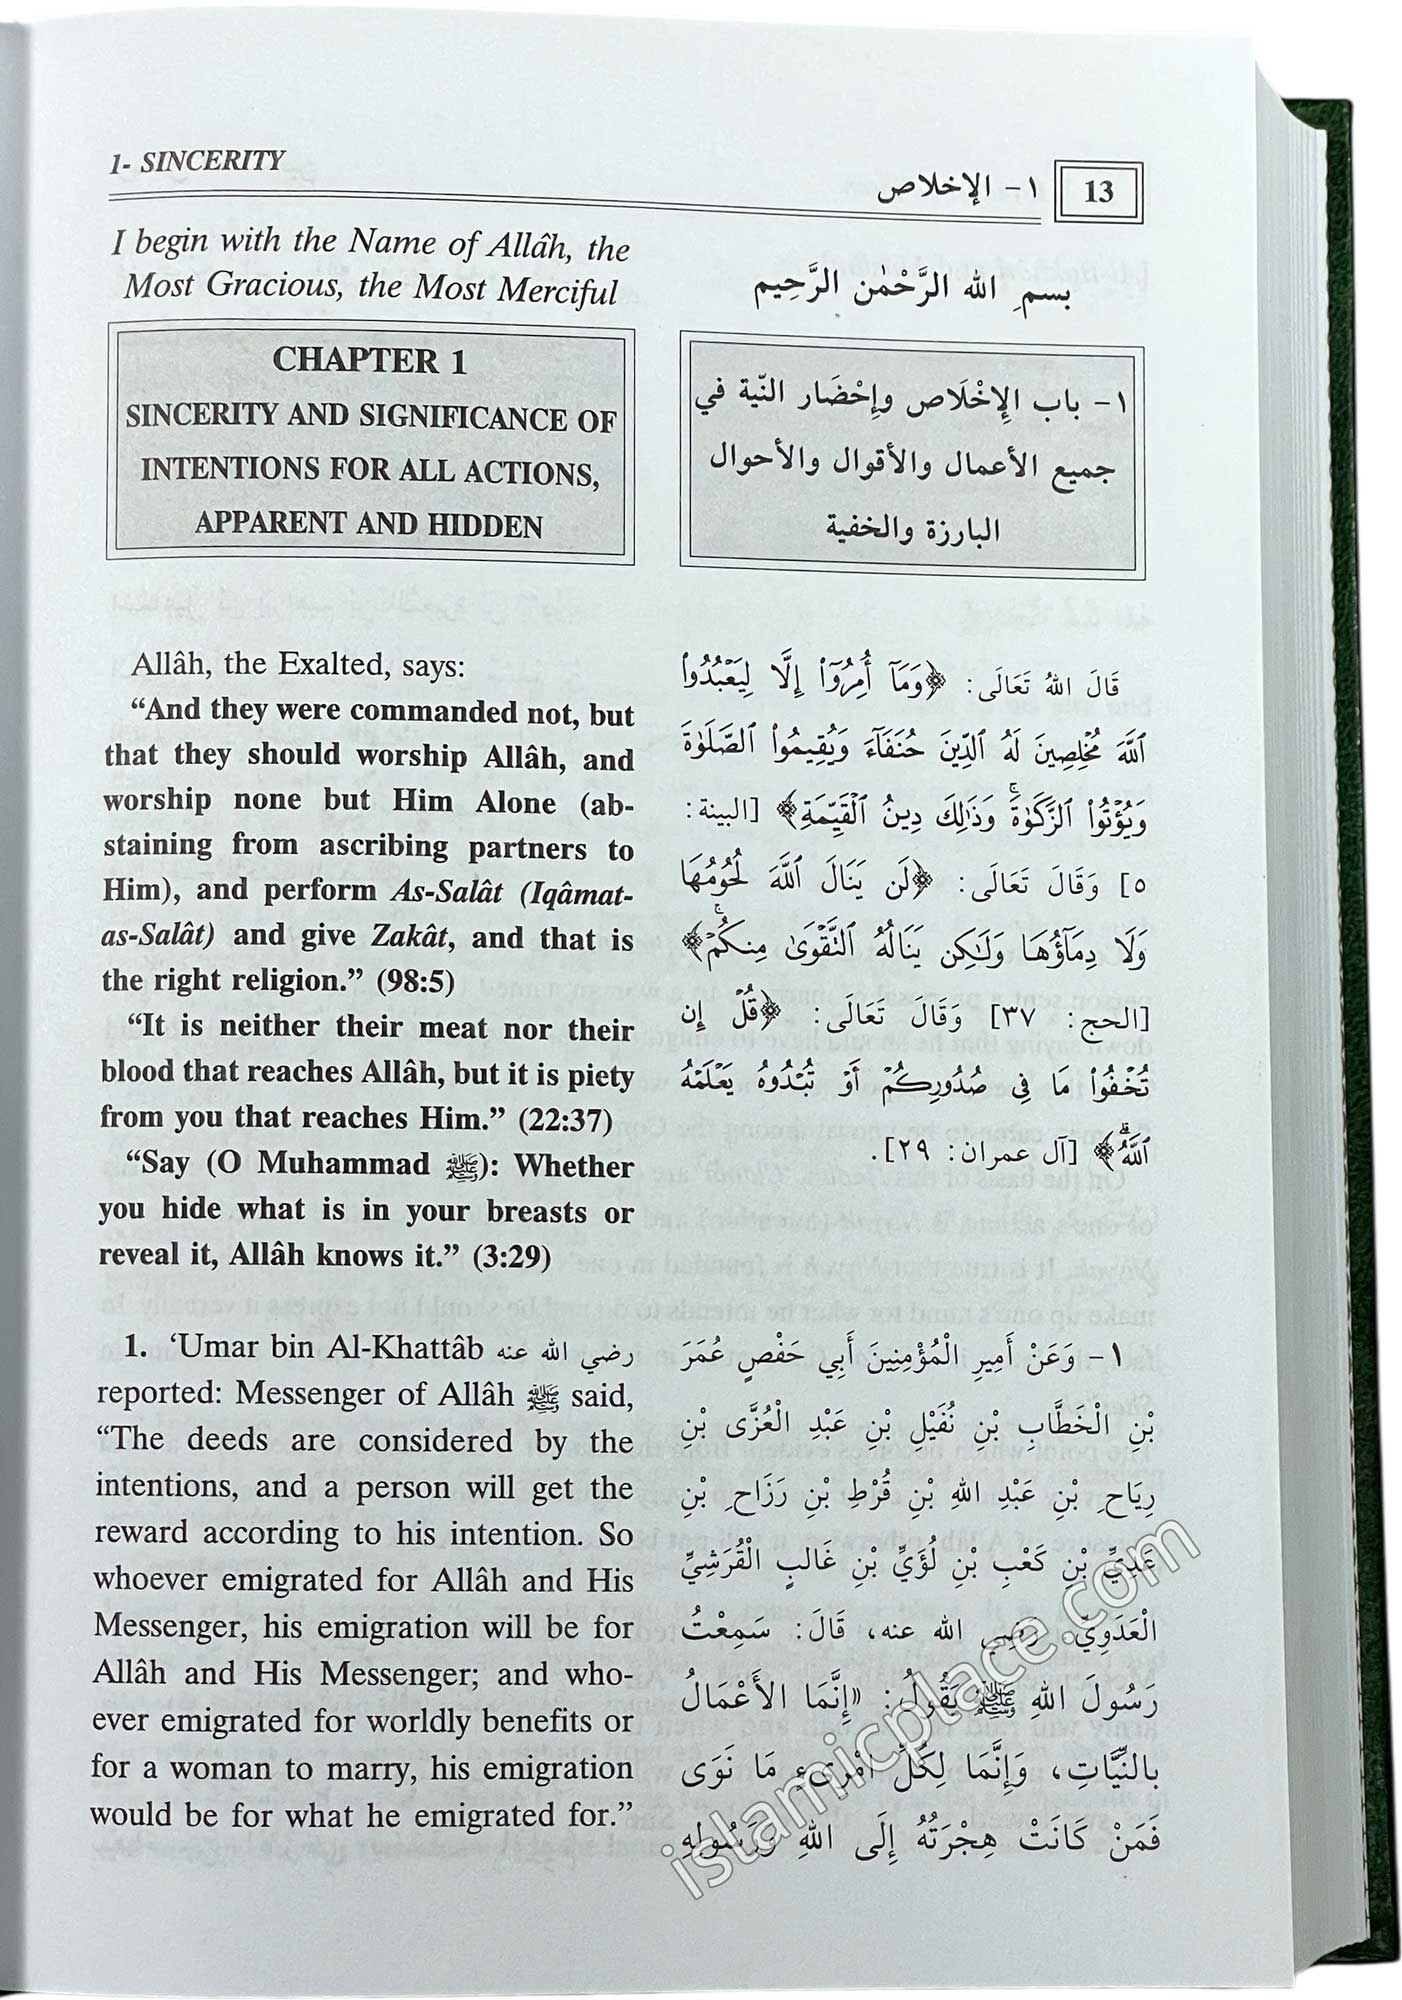 1- SINCERITY
١- الإخلاص
13
I begin with the Name of Allâh, the
Most Gracious, the Most Merciful
CHAPTER 1
SINCERITY AND SIGNIFICANCE OF
INTENTIONS FOR ALL ACTIONS,
APPARENT AND HIDDEN
Allâh, the Exalted, says:
“And they were commanded not, but
that they should worship Allâh, and
worship none but Him Alone (ab-
staining from ascribing partners to
Him), and perform As-Salât (Iqâmat-
as-Salât) and give Zakât, and that is
the right religion.” (98:5)
“It is neither their meat nor their
blood that reaches Allâh, but it is piety
from you that reaches Him.” (22:37)
“Say (O Muhammad ﷺ): Whether
you hide what is in your breasts or
reveal it, Allâh knows it.” (3:29)
1. ‘Umar bin Al-Khattâb رضي الله عنه
reported: Messenger of Allâh ﷺ said,
“The deeds are considered by the
intentions, and a person will get the
reward according to his intention. So
whoever emigrated for Allâh and His
Messenger, his emigration will be for
Allâh and His Messenger; and who-
ever emigrated for worldly benefits or
for a woman to marry, his emigration
would be for what he emigrated for.”
بسمِ الله الرَّحْمٰن الرَّحِيم
١- باب الإِخْلَاص وإِحْضَار النّية في
جميع الأعمال والأقوال والأحوال
البارزة والخفية
قَالَ اللهُ تَعَالَى: ﴿وَمَآ أُمِرُوٓا۟ إِلَّا لِيَعْبُدُوا۟
ٱللَّهَ مُخْلِصِينَ لَهُ ٱلدِّينَ حُنَفَآءَ وَيُقِيمُوا۟ ٱلصَّلَوٰةَ
وَيُؤْتُوا۟ ٱلزَّكَوٰةَۚ وَذَٰلِكَ دِينُ ٱلْقَيِّمَةِ﴾ [البينة:
٥] وَقَالَ تَعَالَى: ﴿لَن يَنَالَ ٱللَّهَ لُحُومُهَا
وَلَا دِمَآؤُهَا وَلَٰكِن يَنَالُهُ ٱلتَّقْوَىٰ مِنكُمْۚ﴾
[الحج: ٣٧] وَقَالَ تَعَالَى: ﴿قُلْ إِن
تُخْفُوا۟ مَا فِى صُدُورِكُمْ أَوْ تُبْدُوهُ يَعْلَمْهُ
ٱللَّهُۗ﴾ [آل عمران: ٢٩].
١- وَعَنْ أَمِيرِ الْمُؤْمِنِينَ أَبِي حَفْصٍ عُمَرَ
بْنِ الْخَطَّابِ بْنِ نُفَيْلِ بْنِ عَبْدِ الْعُزَّى بْنِ
رِيَاحِ بْنِ عَبْدِ اللهِ بْنِ قُرْطِ بْنِ رَزَاحِ بْنِ
عَدِيِّ بْنِ كَعْبِ بْنِ لُؤَيِّ بْنِ غَالِبٍ الْقُرَشِيِّ
الْعَدَوِيِّ. رضي الله عنه، قَالَ: سَمِعْتُ
رَسُولَ اللهِ ﷺ يَقُولُ: «إِنَّمَا الأَعْمَالُ
بِالنِّيَّاتِ، وَإِنَّمَا لِكُلِّ امْرِىءٍ مَا نَوَى
فَمَنْ كَانَتْ هِجْرَتُهُ إِلَى اللهِ وَرَسُولِهِ
islamicplace.com